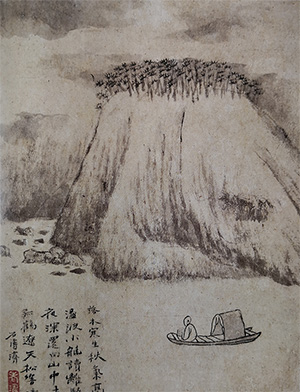 落木寒生秋氣高
蕩波小艇讀離騷
夜深還向山中
孤鶴遼天松
石濤濟